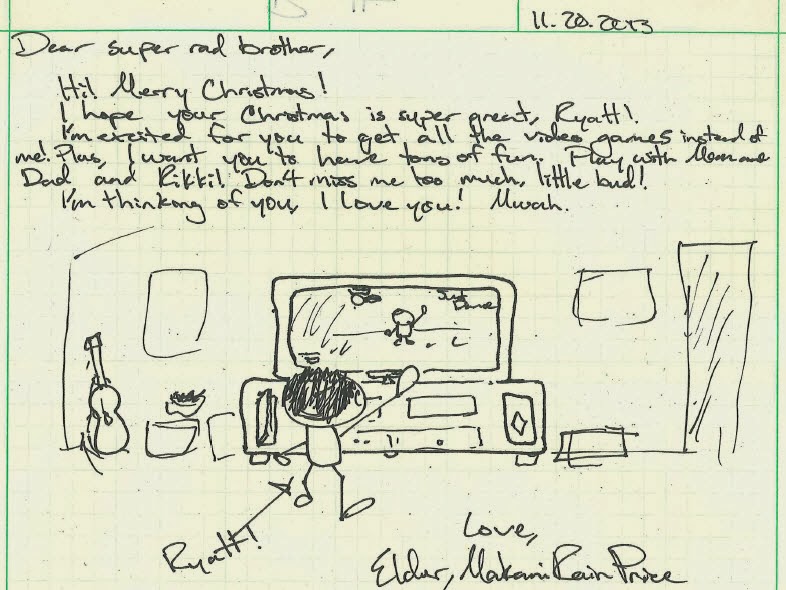 11.20.2013
Dear super rad brother,
Hi! Merry Christmas!
I hope your Christmas is super great, Ryatt!
I'm excited for you to get all the video games instead of
me! Plus, I want you to have tons of fun. Play with Mom and
Dad and Rikki! Don't miss me too much, little bud!
I'm thinking of you, I love you! Mwah.
Just
Dance
Ryatt!
Love,
Elder, Makani Rain Price